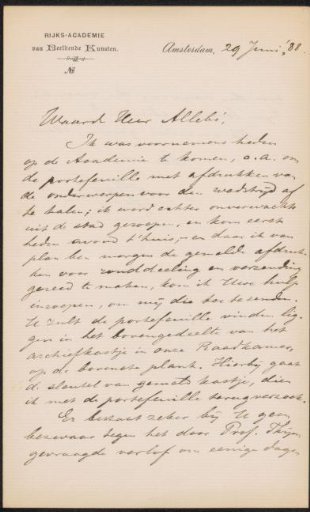 RIJKS-ACADEMIE
van Beeldende Kunsten.
№
Amsterdam, 29 Juni '88.
Waarde Heer Allebé,
Ik was voornemens heden
op de Academie te komen, o.a. om
de portefeuille met afdrukken van
de onderwerpen voor den wedstrijd af
te halen; ik word echter onverwacht
uit de stad geroepen, en kom eerst
heden avond t'huis, en daar ik van
plan ben morgen de gemelde afdruk-
ken voor rondzending en verzending
gereed te maken, kom ik Uwe hulp
inroepen, om mij die toe te zenden.
U zult de portefeuille vinden lig-
gen in het bovengedeelte van het
archiefkastje in onze Raadkamer,
op de bovenste plank. Hierbij gaat
de sleutel van gemeld kastje, dien
ik met de portefeuille terugverzoek.
Er bestaat zeker bij U geen
bezwaar tegen het door Prof. Thijm
gevraagde verlof om eenige dagen